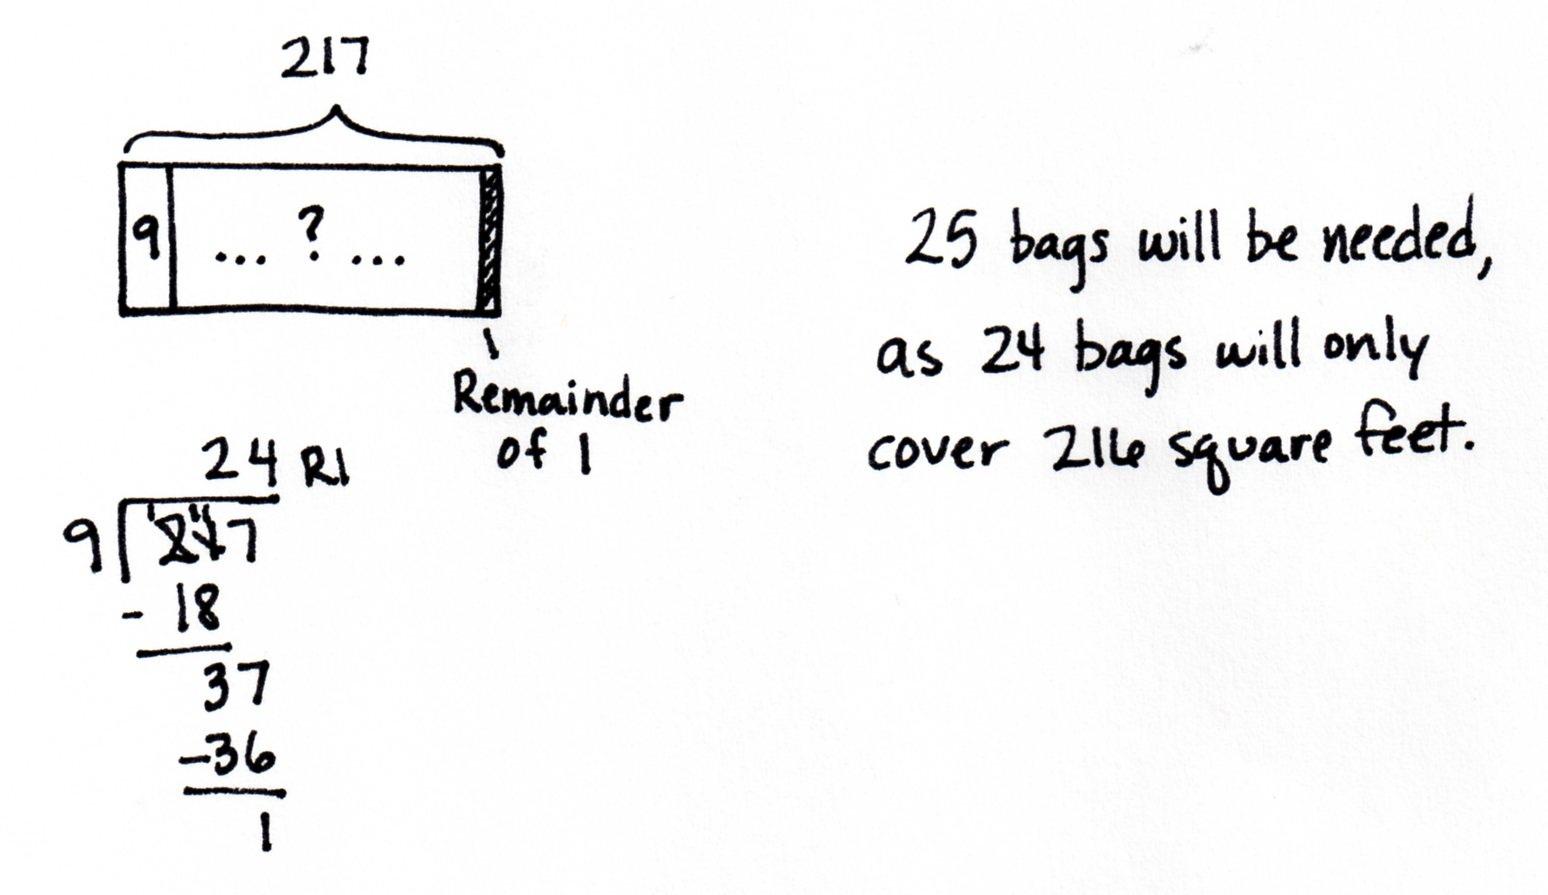 217
9 ... ? ...
Remainder
of 1
24 R1
9 217
- 18
37
-36
1
25 bags will be needed,
as 24 bags will only
cover 216 square feet.